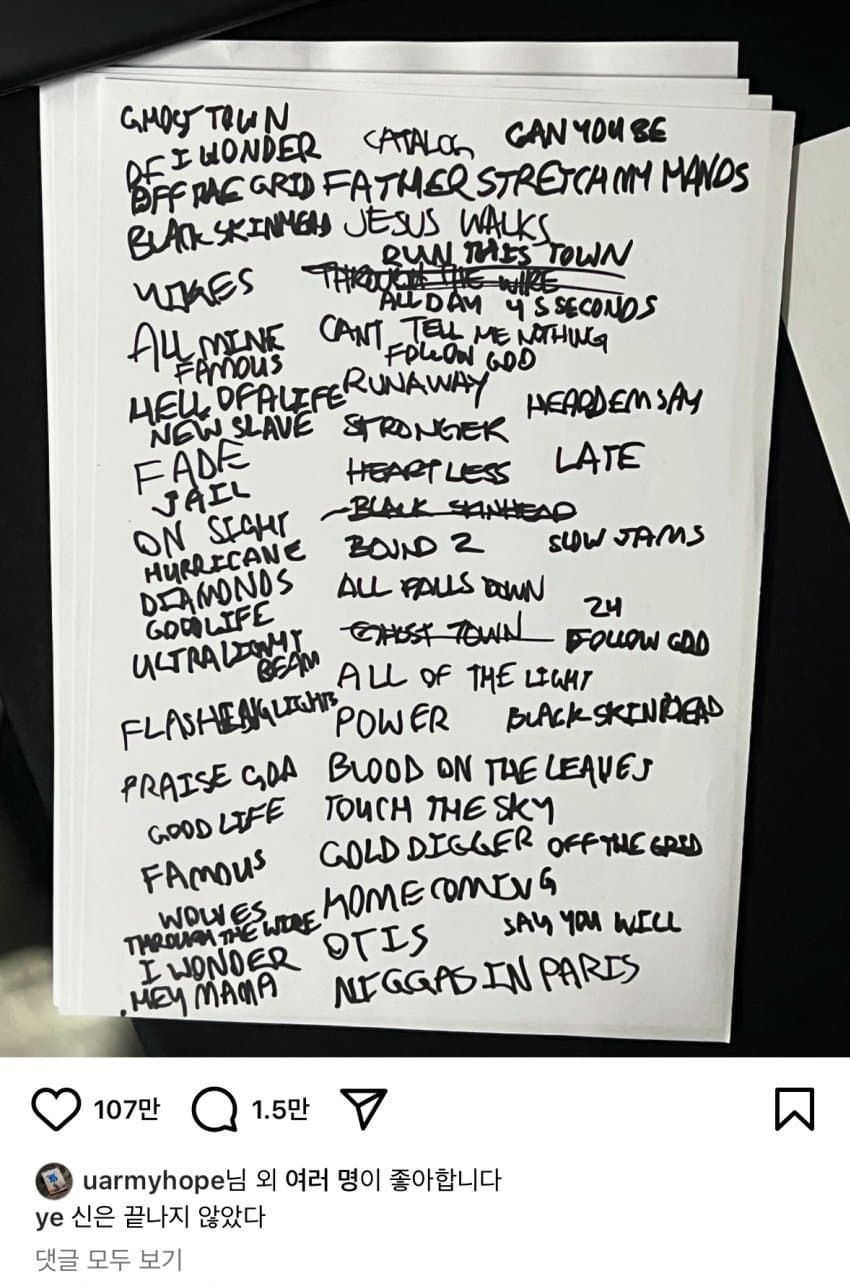 GHOST TOWN
I WONDER CATALOG CAN YOU BE
OFF THE GRID FATHER STRETCH MY HANDS
BLACK SKINHEAD JESUS WALKS
RUN THIS TOWN
YIKES THROUGH THE WIRE
ALL DAY 4 5 SECONDS
ALL MINE CANT TELL ME NOTHING
FAMOUS FOLLOW GOD
HELL OF A LIFE RUNAWAY HEARD EM SAY
NEW SLAVE STRONGER
FADE HEARTLESS LATE
JAIL
ON SIGHT BLACK SKINHEAD
HURRICANE BOUND 2 SLOW JAMS
DIAMONDS ALL FALLS DOWN
GOOD LIFE 24
ULTRALIGHT GHOST TOWN FOLLOW GOD
BEAM ALL OF THE LIGHT
FLASHING LIGHTS POWER BLACK SKINHEAD
PRAISE GOD BLOOD ON THE LEAVES
GOOD LIFE TOUCH THE SKY
FAMOUS GOLD DIGGER OFF THE GRID
WOLVES HOMECOMING
THROUGH THE WIRE SAY YOU WILL
I WONDER OTIS
HEY MAMA NIGGAS IN PARIS
107만 1.5만
uarmyhope님 외 여러 명이 좋아합니다
ye 신은 끝나지 않았다
댓글 모두 보기